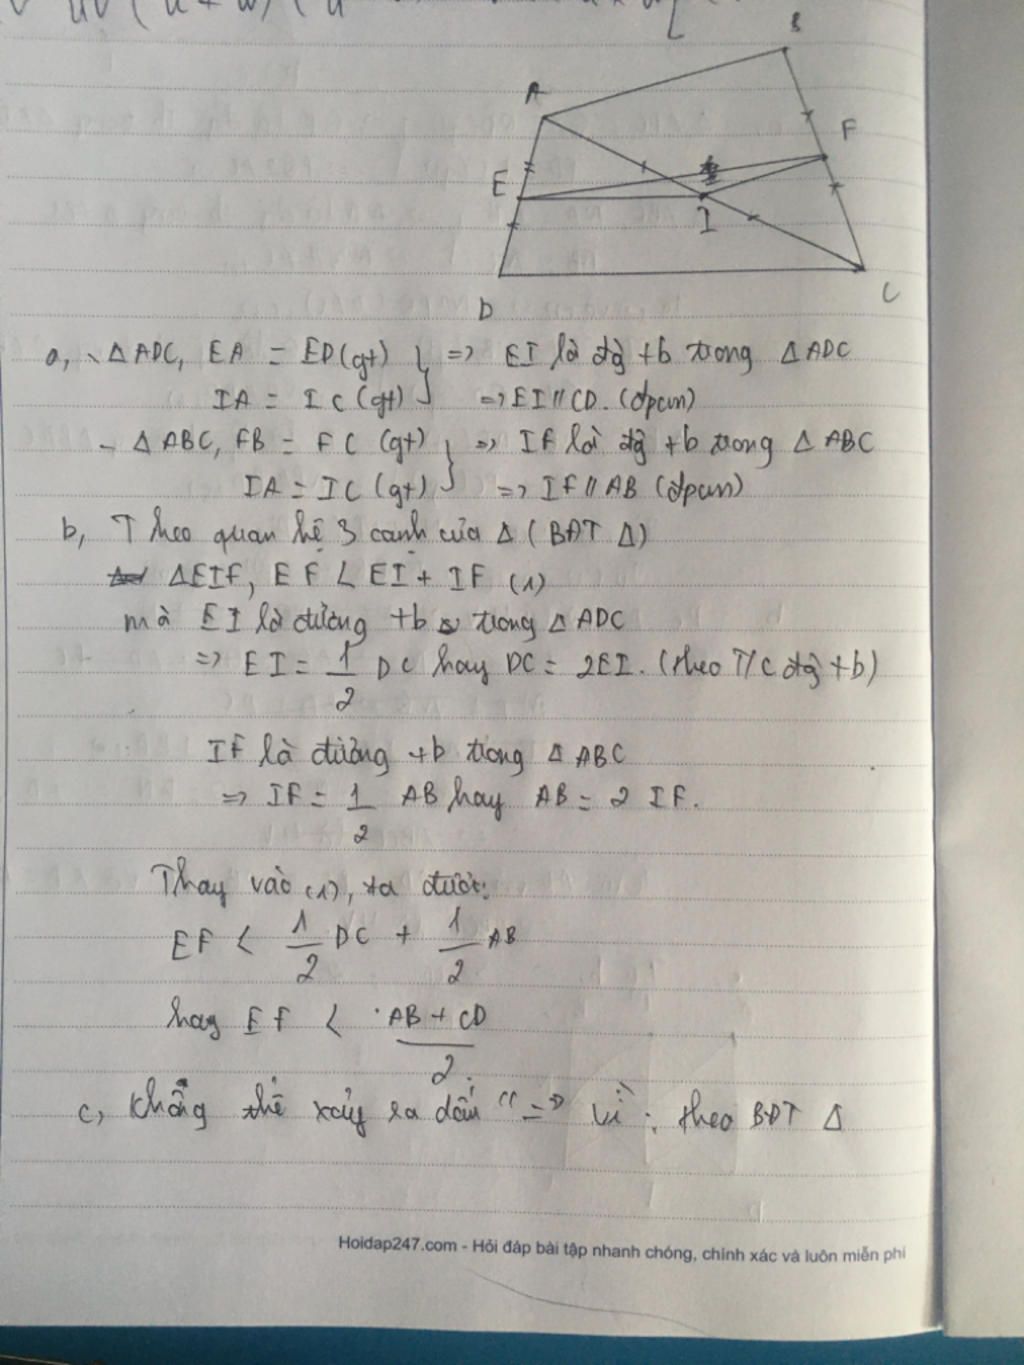 B
A
F
E
I
D
C
a, - Δ ADC, EA = ED (gt) } => EI là đg` +b trong Δ ADC
IA = IC (gt) => EI // CD. (đpcm)
- Δ ABC, FB = FC (gt) } => IF là đg` +b trong Δ ABC
IA = IC (gt) => IF // AB (đpcm)
b, Theo quan hệ 3 cạnh của Δ (BĐT Δ)
ΔEIF, EF < EI + IF (1)
mà EI là đường +b trong Δ ADC
=> EI = 1/2 DC hay DC = 2EI. (theo T/c đg` +b)
IF là đường +b trong Δ ABC
=> IF = 1/2 AB hay AB = 2 IF.
Thay vào (1), ta được:
EF < 1/2 DC + 1/2 AB
hay EF < (AB + CD)/2.
c, Không thể xảy ra dấu "=" vì: theo BĐT Δ
Hoidap247.com - Hỏi đáp bài tập nhanh chóng, chính xác và luôn miễn phí